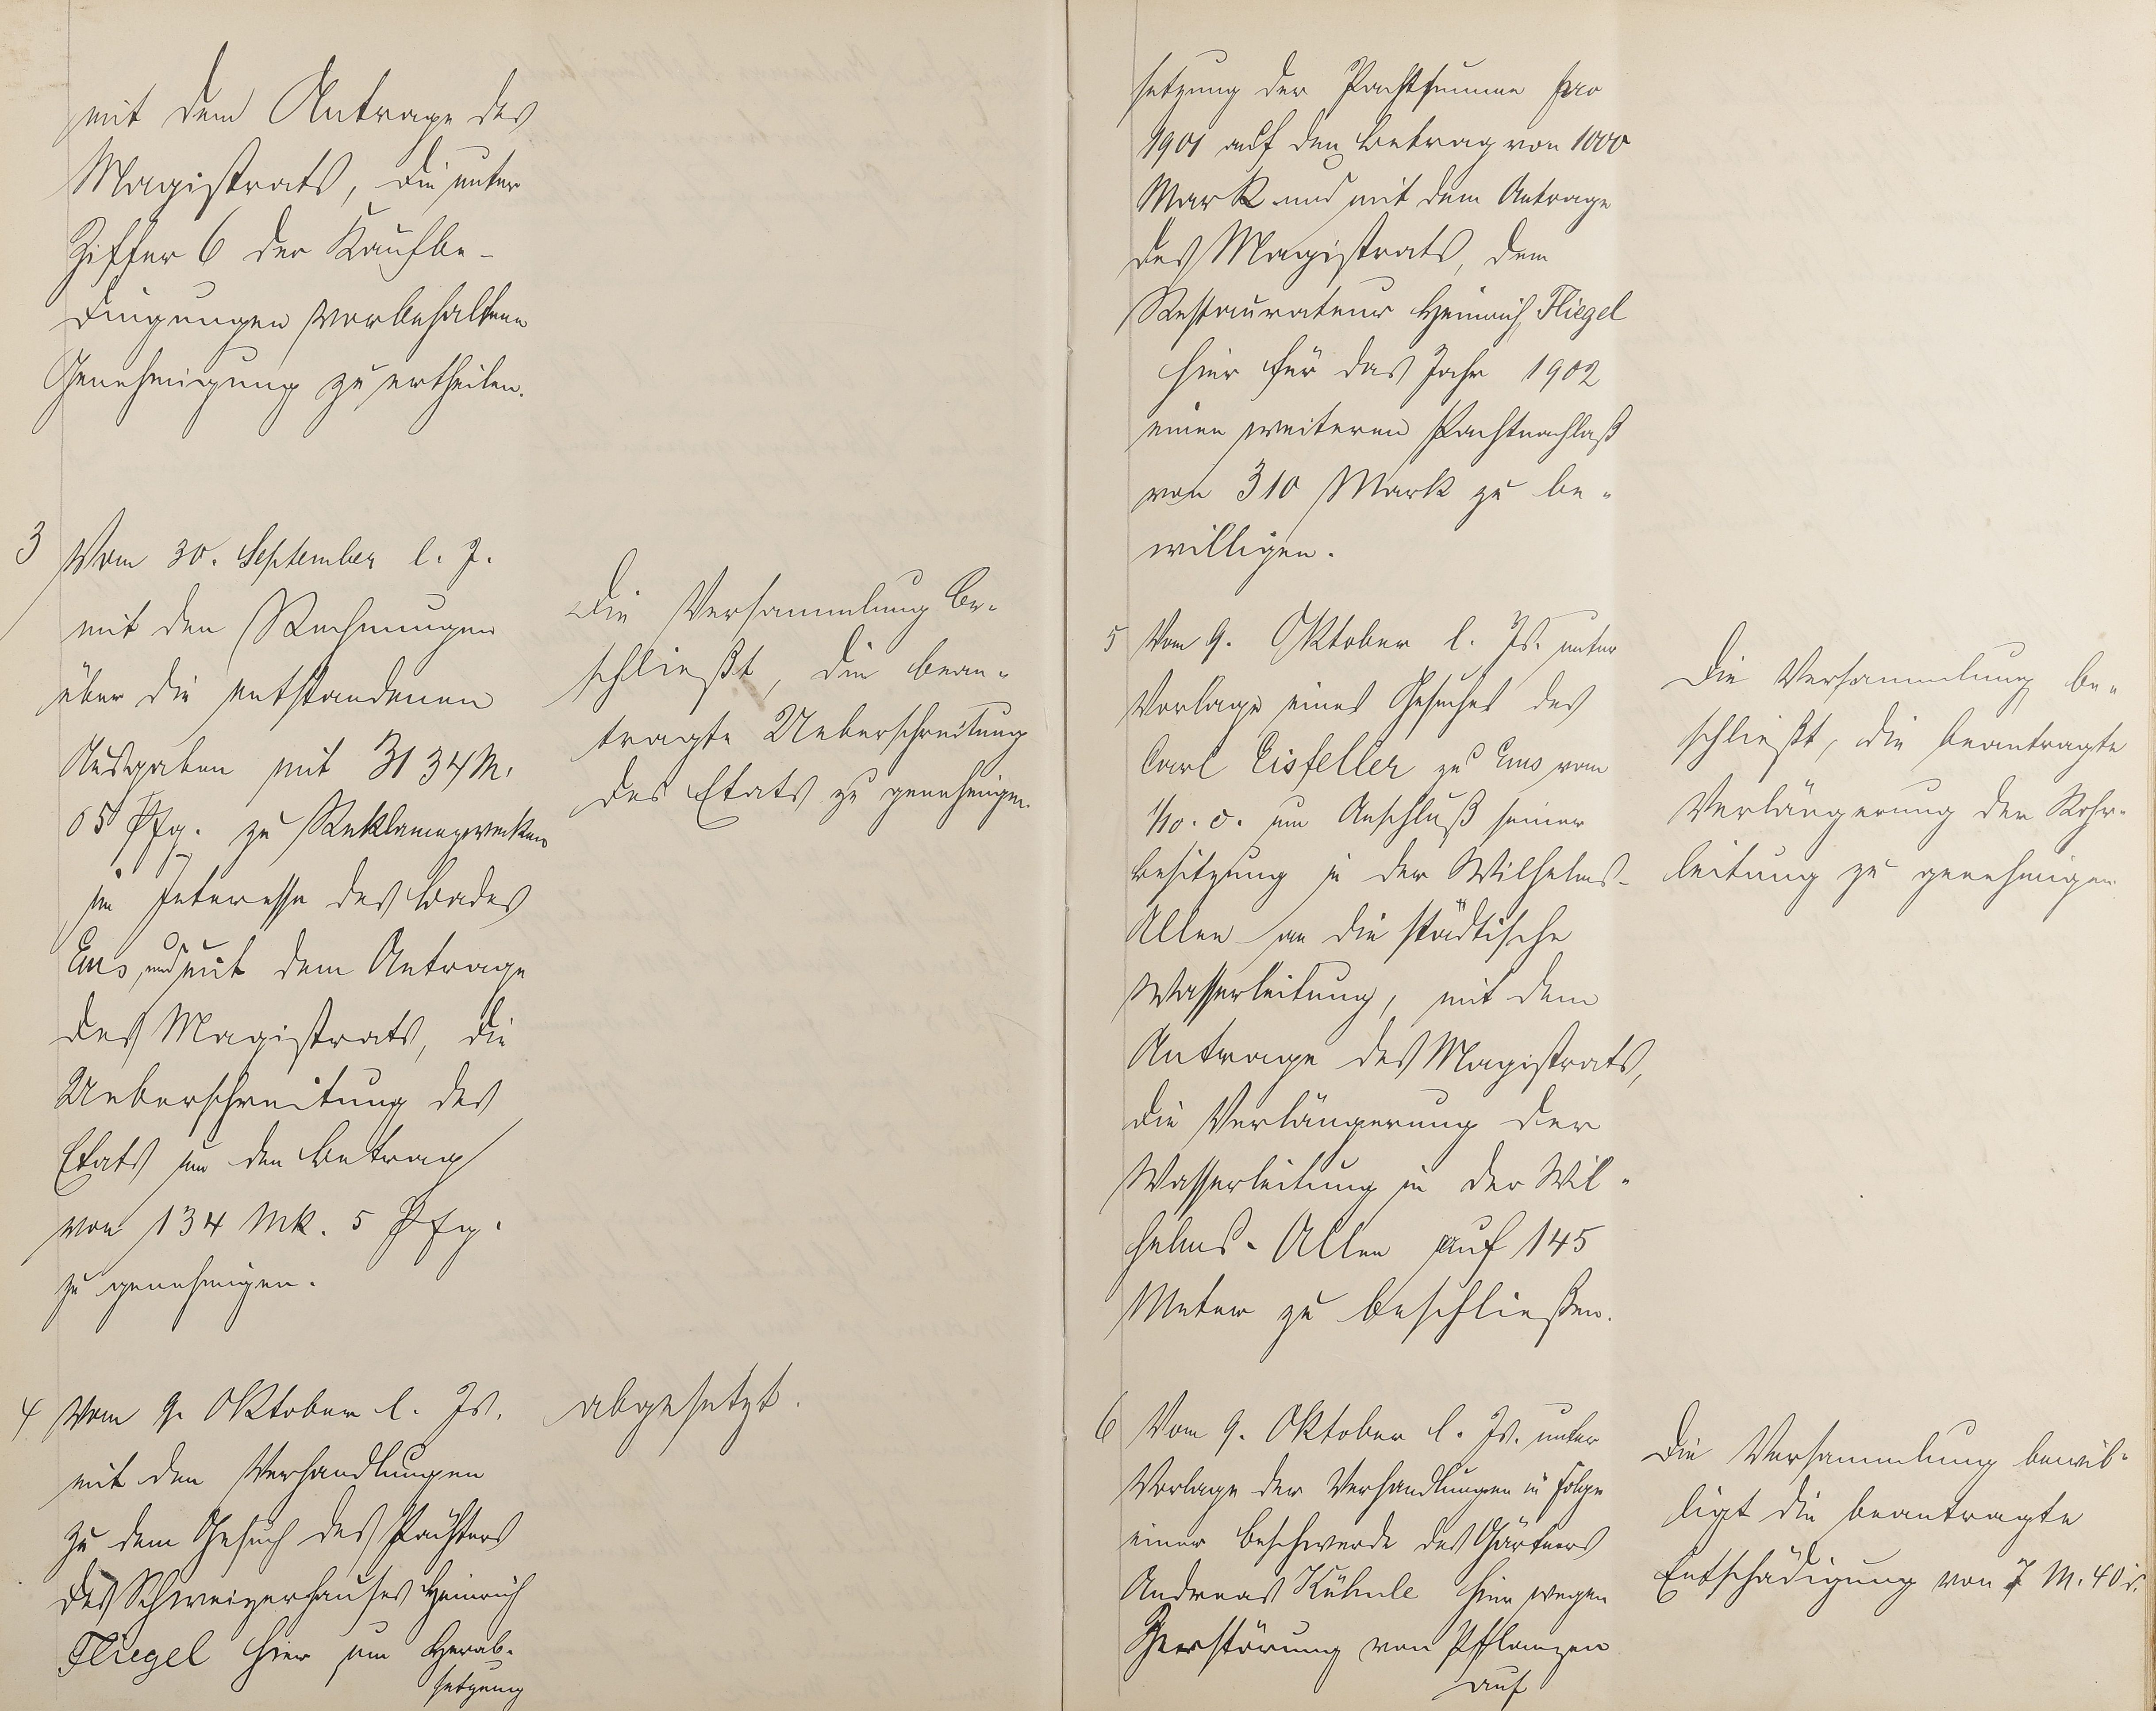 mit dem Antrage des
Magistrats, die unter
Ziffer 6 der Kaufbe-
dingungen vorbehaltene
Genehmigung zu ertheilen.
3 Vom 30. September l. J.
mit den Rechnungen
über die entstandenen
Ausgaben mit 3134 M.
05 Pfg. zu Reklamezwecken
im Interesse des Bades
Ems, und mit dem Antrage
des Magistrats, die
Ueberschreitung des
Etats um den Betrag
von 134 Mk. 5 Pfg.
zu genehmigen.
Die Versammlung be-
schließt, die bean-
tragte Ueberschreitung
des Etats zu genehmigen.
4 Vom 9. Oktober l. Js.
mit den Verhandlungen
zu dem Gesuch des Pächters
des Schweizerhauses Heinrich
Fliegel hier um Herab-
setzung
abgesetzt.
setzung der Pachtsumme pro
1901 auf den Betrag von 1000
Mark und mit dem Antrage
des Magistrats, dem
Restaurateur Heinrich Fliegel
hier für das Jahr 1902
einen weiteren Pachtnachlaß
von 310 Mark zu be-
willigen.
5 Vom 9. Oktober l. Js. unter
Vorlage eines Gesuches des
Carl Eisfeller zu Ems vom
1/10. c. um Anschluß seiner
Besitzung in der Wilhelms-
Allee an die städtische
Wasserleitung, mit dem
Antrage des Magistrats,
die Verlängerung der
Wasserleitung in der Wil-
helms-Allee auf 145
Meter zu beschließen.
Die Versammlung be-
schließt, die beantragte
Verlängerung der Rohr-
leitung zu genehmigen
6 Vom 9. Oktober l. Js. unter
Vorlage der Verhandlungen in Folge
einer Beschwerde des Gärtners
Andreas Kühnle hier wegen
Zerstörung von Pflanzen
auf
Die Versammlung bewil-
ligt die beantragte
Entschädigung von 7 M. 40 d.